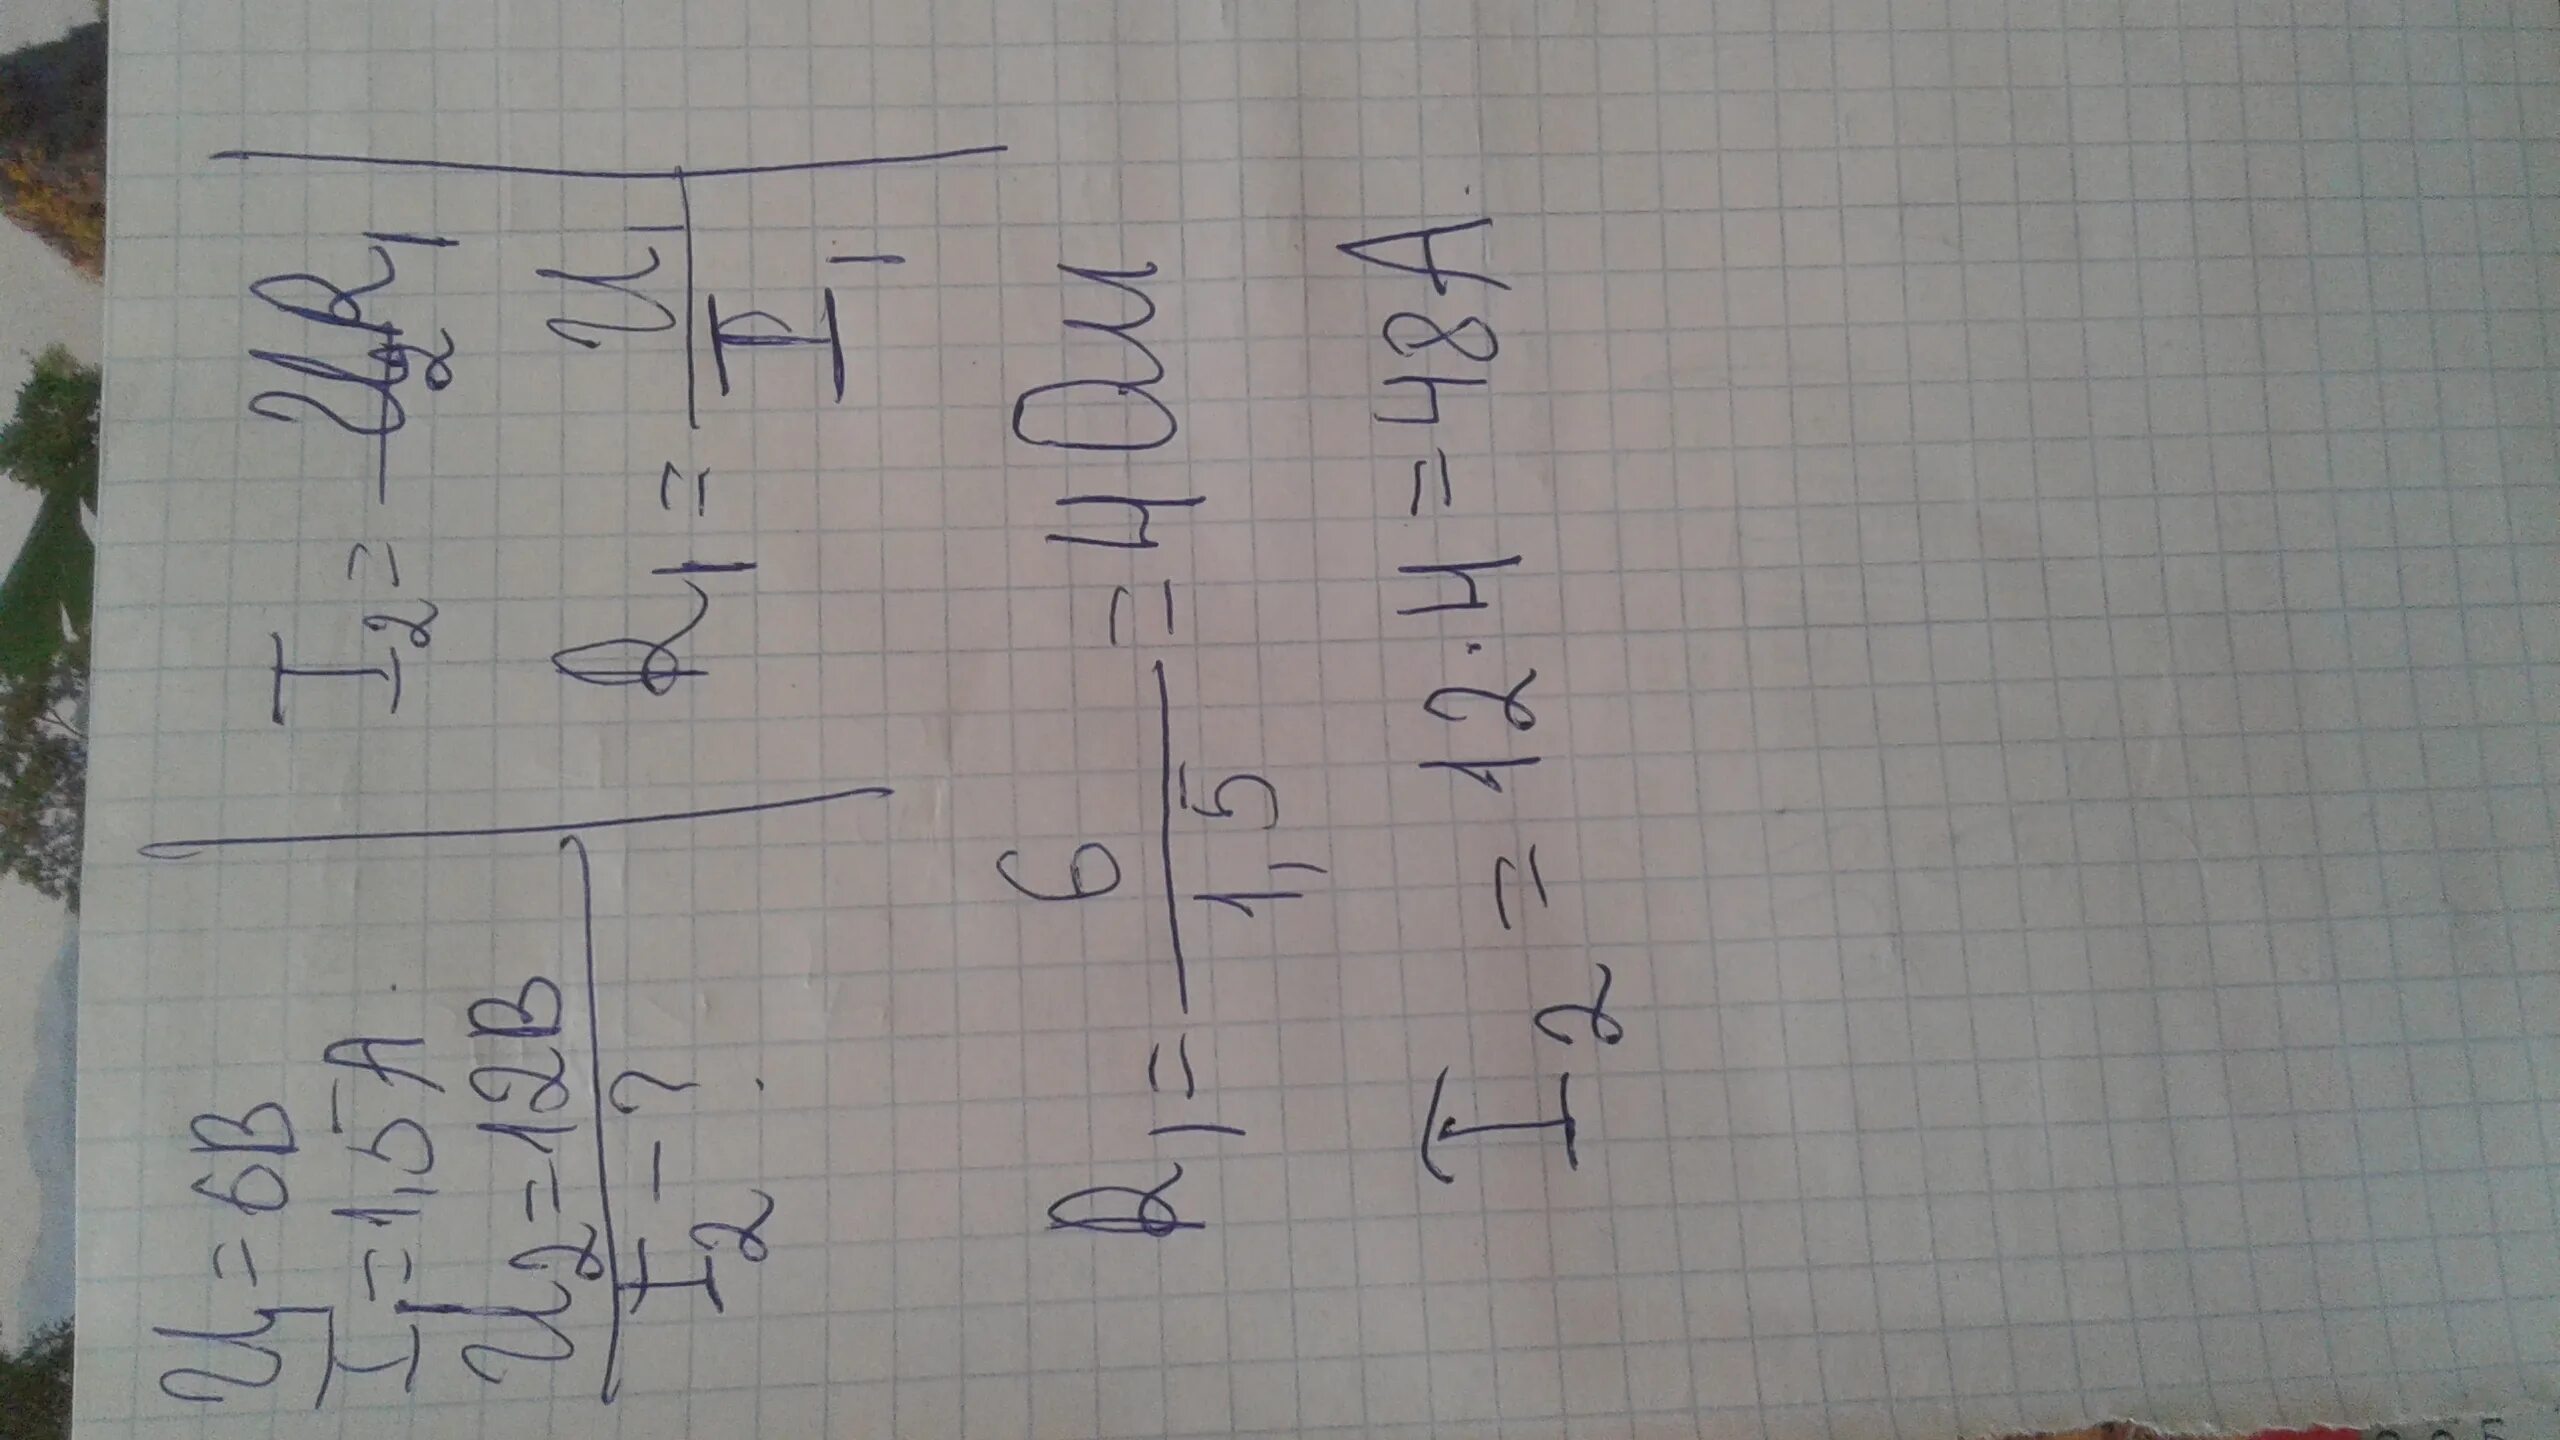 U₁=6В
I₁=1,5А.
U₂=12В
I₂-?
I₂= U₂R₁
R₁= U₁/I₁
R₁= 6/1,5 =4Ом
I₂ = 12·4=48А.